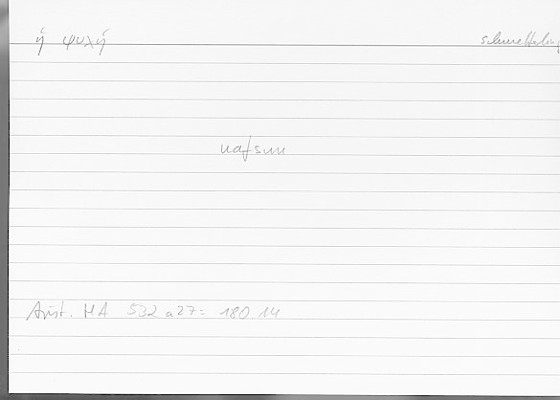 ἡ ψυχή Schmetterling
nafsun
Arist. HA 532 a27 = 180.14